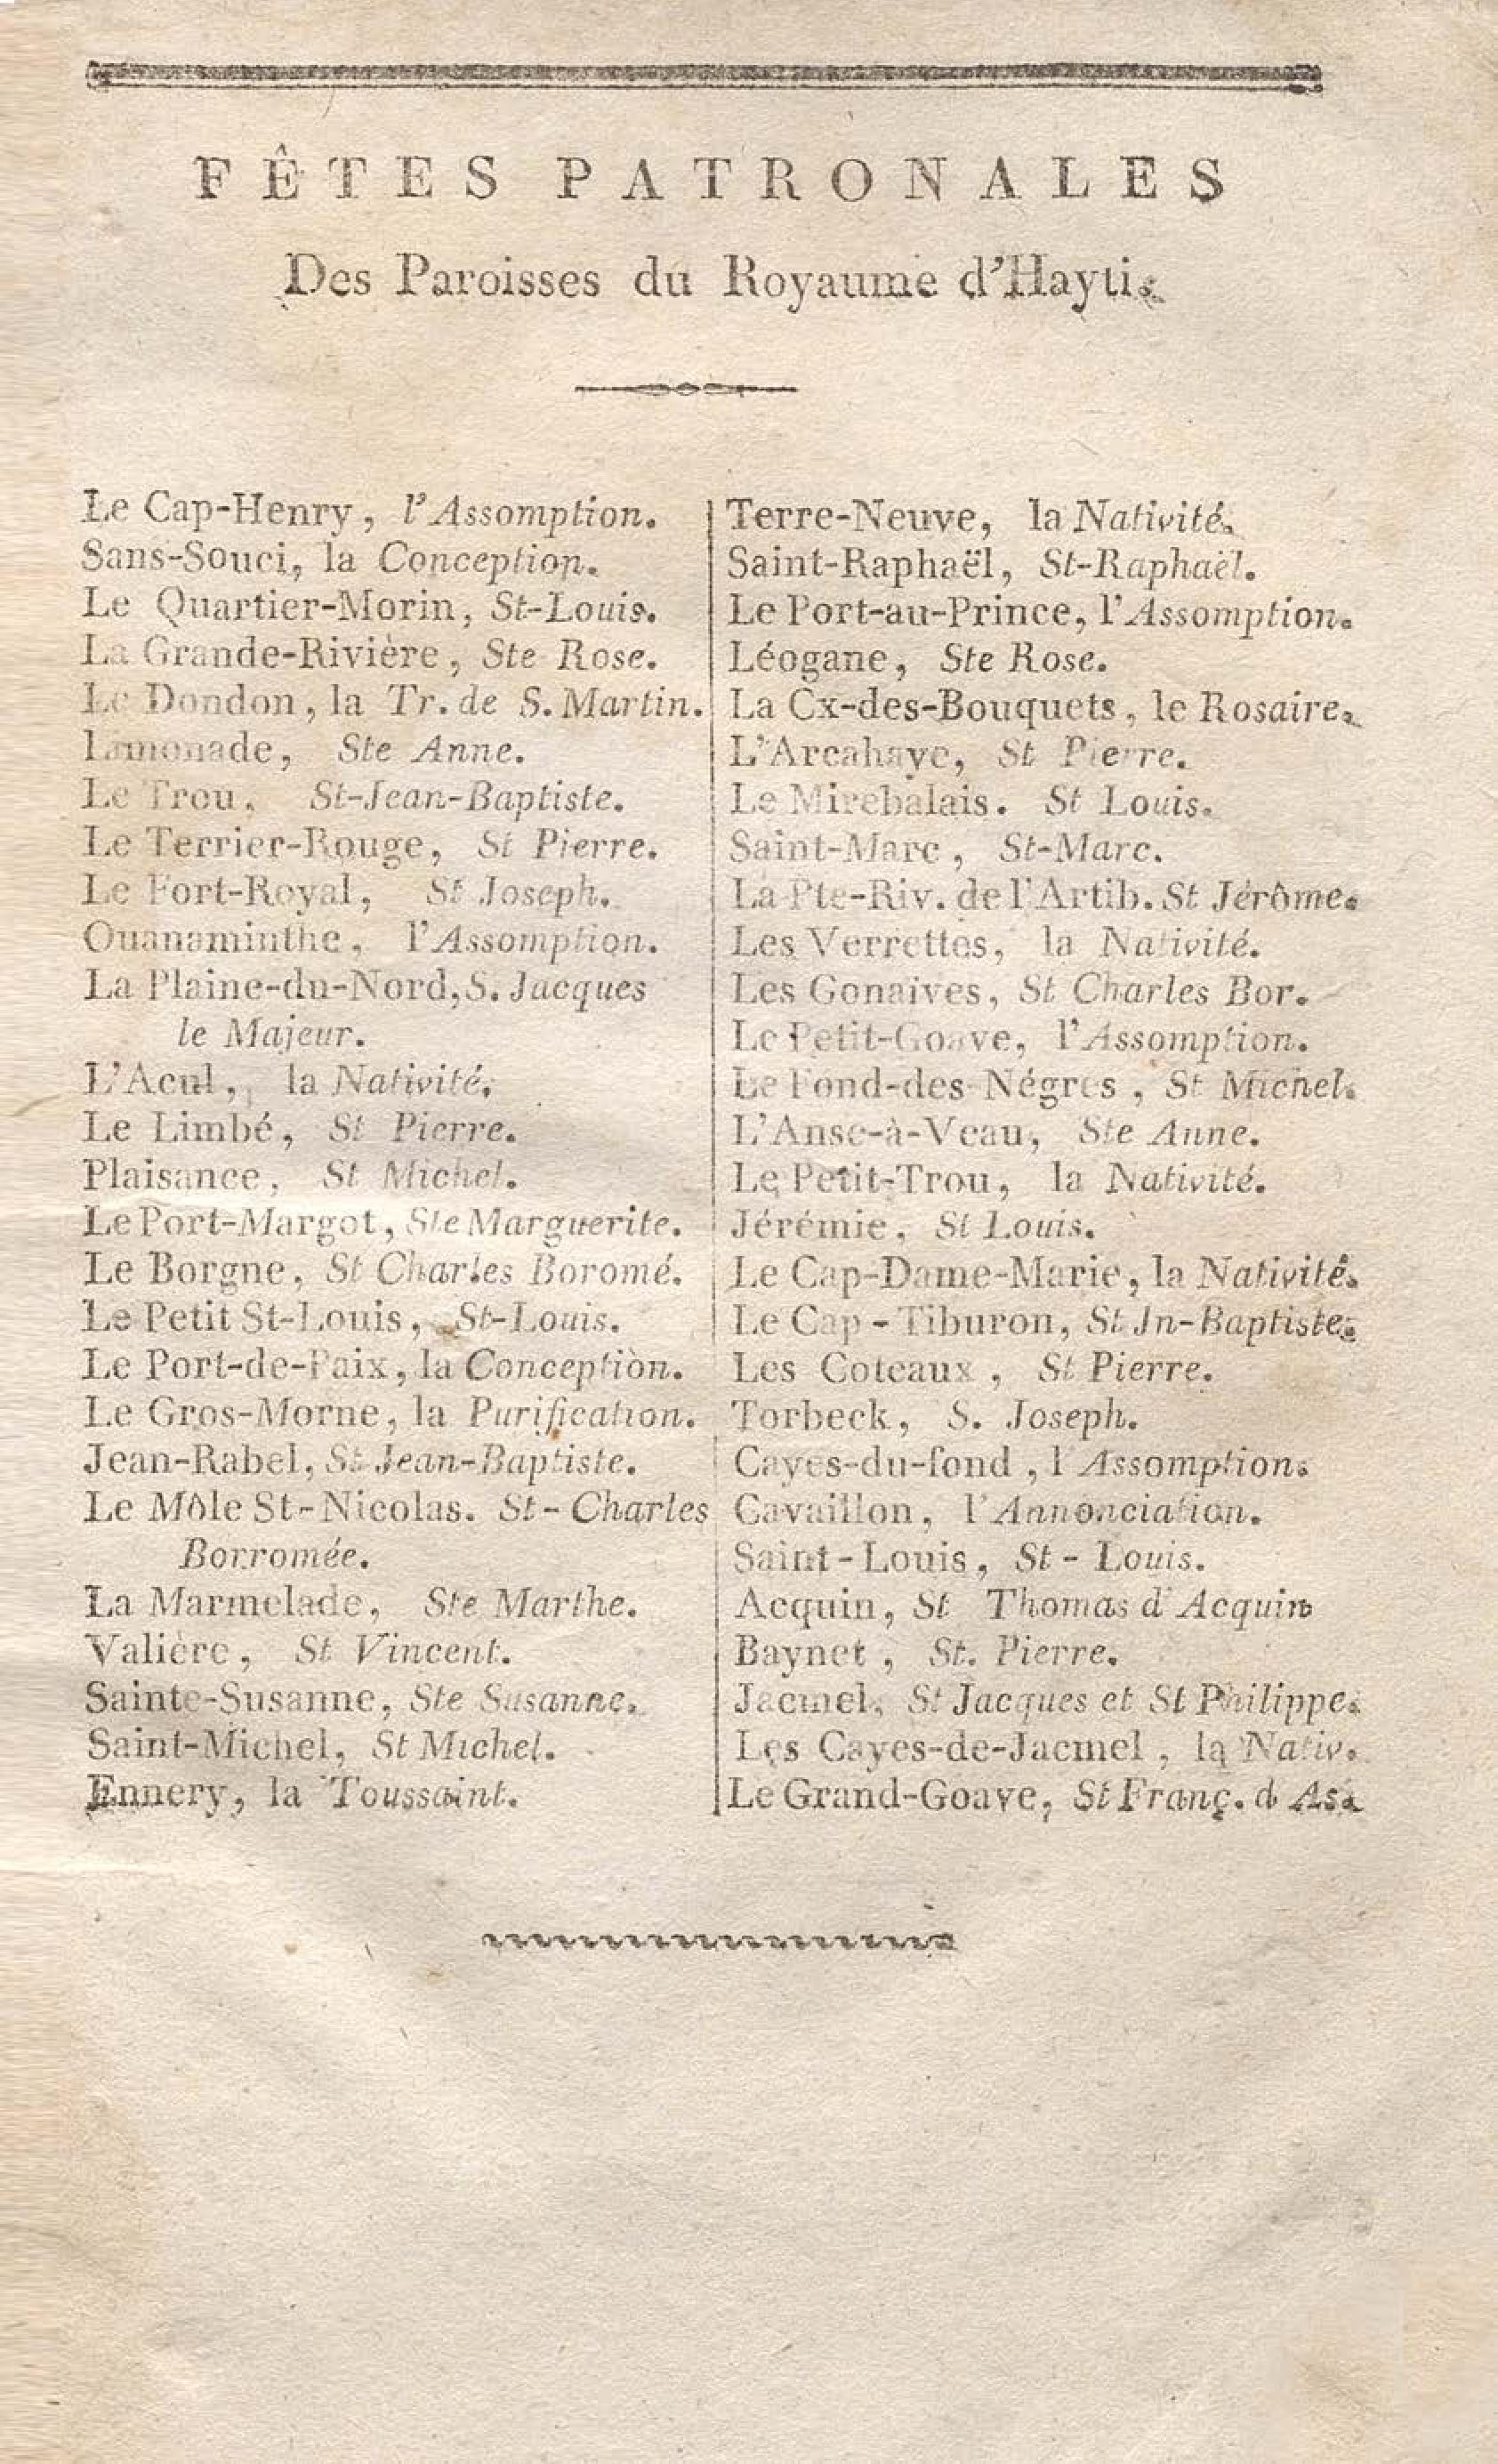 FÊTES PATRONALES
Des Paroisses du Royaume d'Hayti.
Le Cap-Henry, l'Assomption.
Sans-Souci, la Conception.
Le Quartier-Morin, St-Louis.
La Grande-Rivière, Ste Rose.
Le Dondon, la Tr. de S. Martin.
Limonade, Ste Anne.
Le Trou, St-Jean-Baptiste.
Le Terrier-Rouge, St Pierre.
Le Fort-Royal, St Joseph.
Ouanaminthe, l'Assomption.
La Plaine-du-Nord, S. Jacques
le Majeur.
L'Acul, la Nativité.
Le Limbé, St Pierre.
Plaisance, St Michel.
Le Port-Margot, Ste Marguerite.
Le Borgne, St Charles Boromé.
Le Petit St-Louis, St-Louis.
Le Port-de-Paix, la Conception.
Le Gros-Morne, la Purification.
Jean-Rabel, St Jean-Baptiste.
Le Môle St-Nicolas. St-Charles
Borromée.
La Marmelade, Ste Marthe.
Valière, St Vincent.
Sainte-Susanne, Ste Susanne.
Saint-Michel, St Michel.
Ennery, la Toussaint.
Terre-Neuve, la Nativité.
Saint-Raphaël, St-Raphaël.
Le Port-au-Prince, l'Assomption.
Léogane, Ste Rose.
La Cx-des-Bouquets, le Rosaire.
L'Arcahaye, St Pierre.
Le Mirebalais. St Louis.
Saint-Marc, St-Marc.
La Pte-Riv. de l'Artib. St Jérôme.
Les Verrettes, la Nativité.
Les Gonaives, St Charles Bor.
Le Petit-Goave, l'Assomption.
Le Fond-des-Négres, St Michel.
L'Anse-à-Veau, Ste Anne.
Le Petit-Trou, la Nativité.
Jérémie, St Louis.
Le Cap-Dame-Marie, la Nativité.
Le Cap-Tiburon, St Jn-Baptiste.
Les Coteaux, St Pierre.
Torbeck, S. Joseph.
Cayes-du-fond, l'Assomption.
Cavaillon, l'Annonciation.
Saint-Louis, St-Louis.
Acquin, St Thomas d'Acquin
Baynet, St. Pierre.
Jacmel, St Jacques et St Philippe.
Les Cayes-de-Jacmel, la Nativ.
Le Grand-Goave, St Franç. d As.